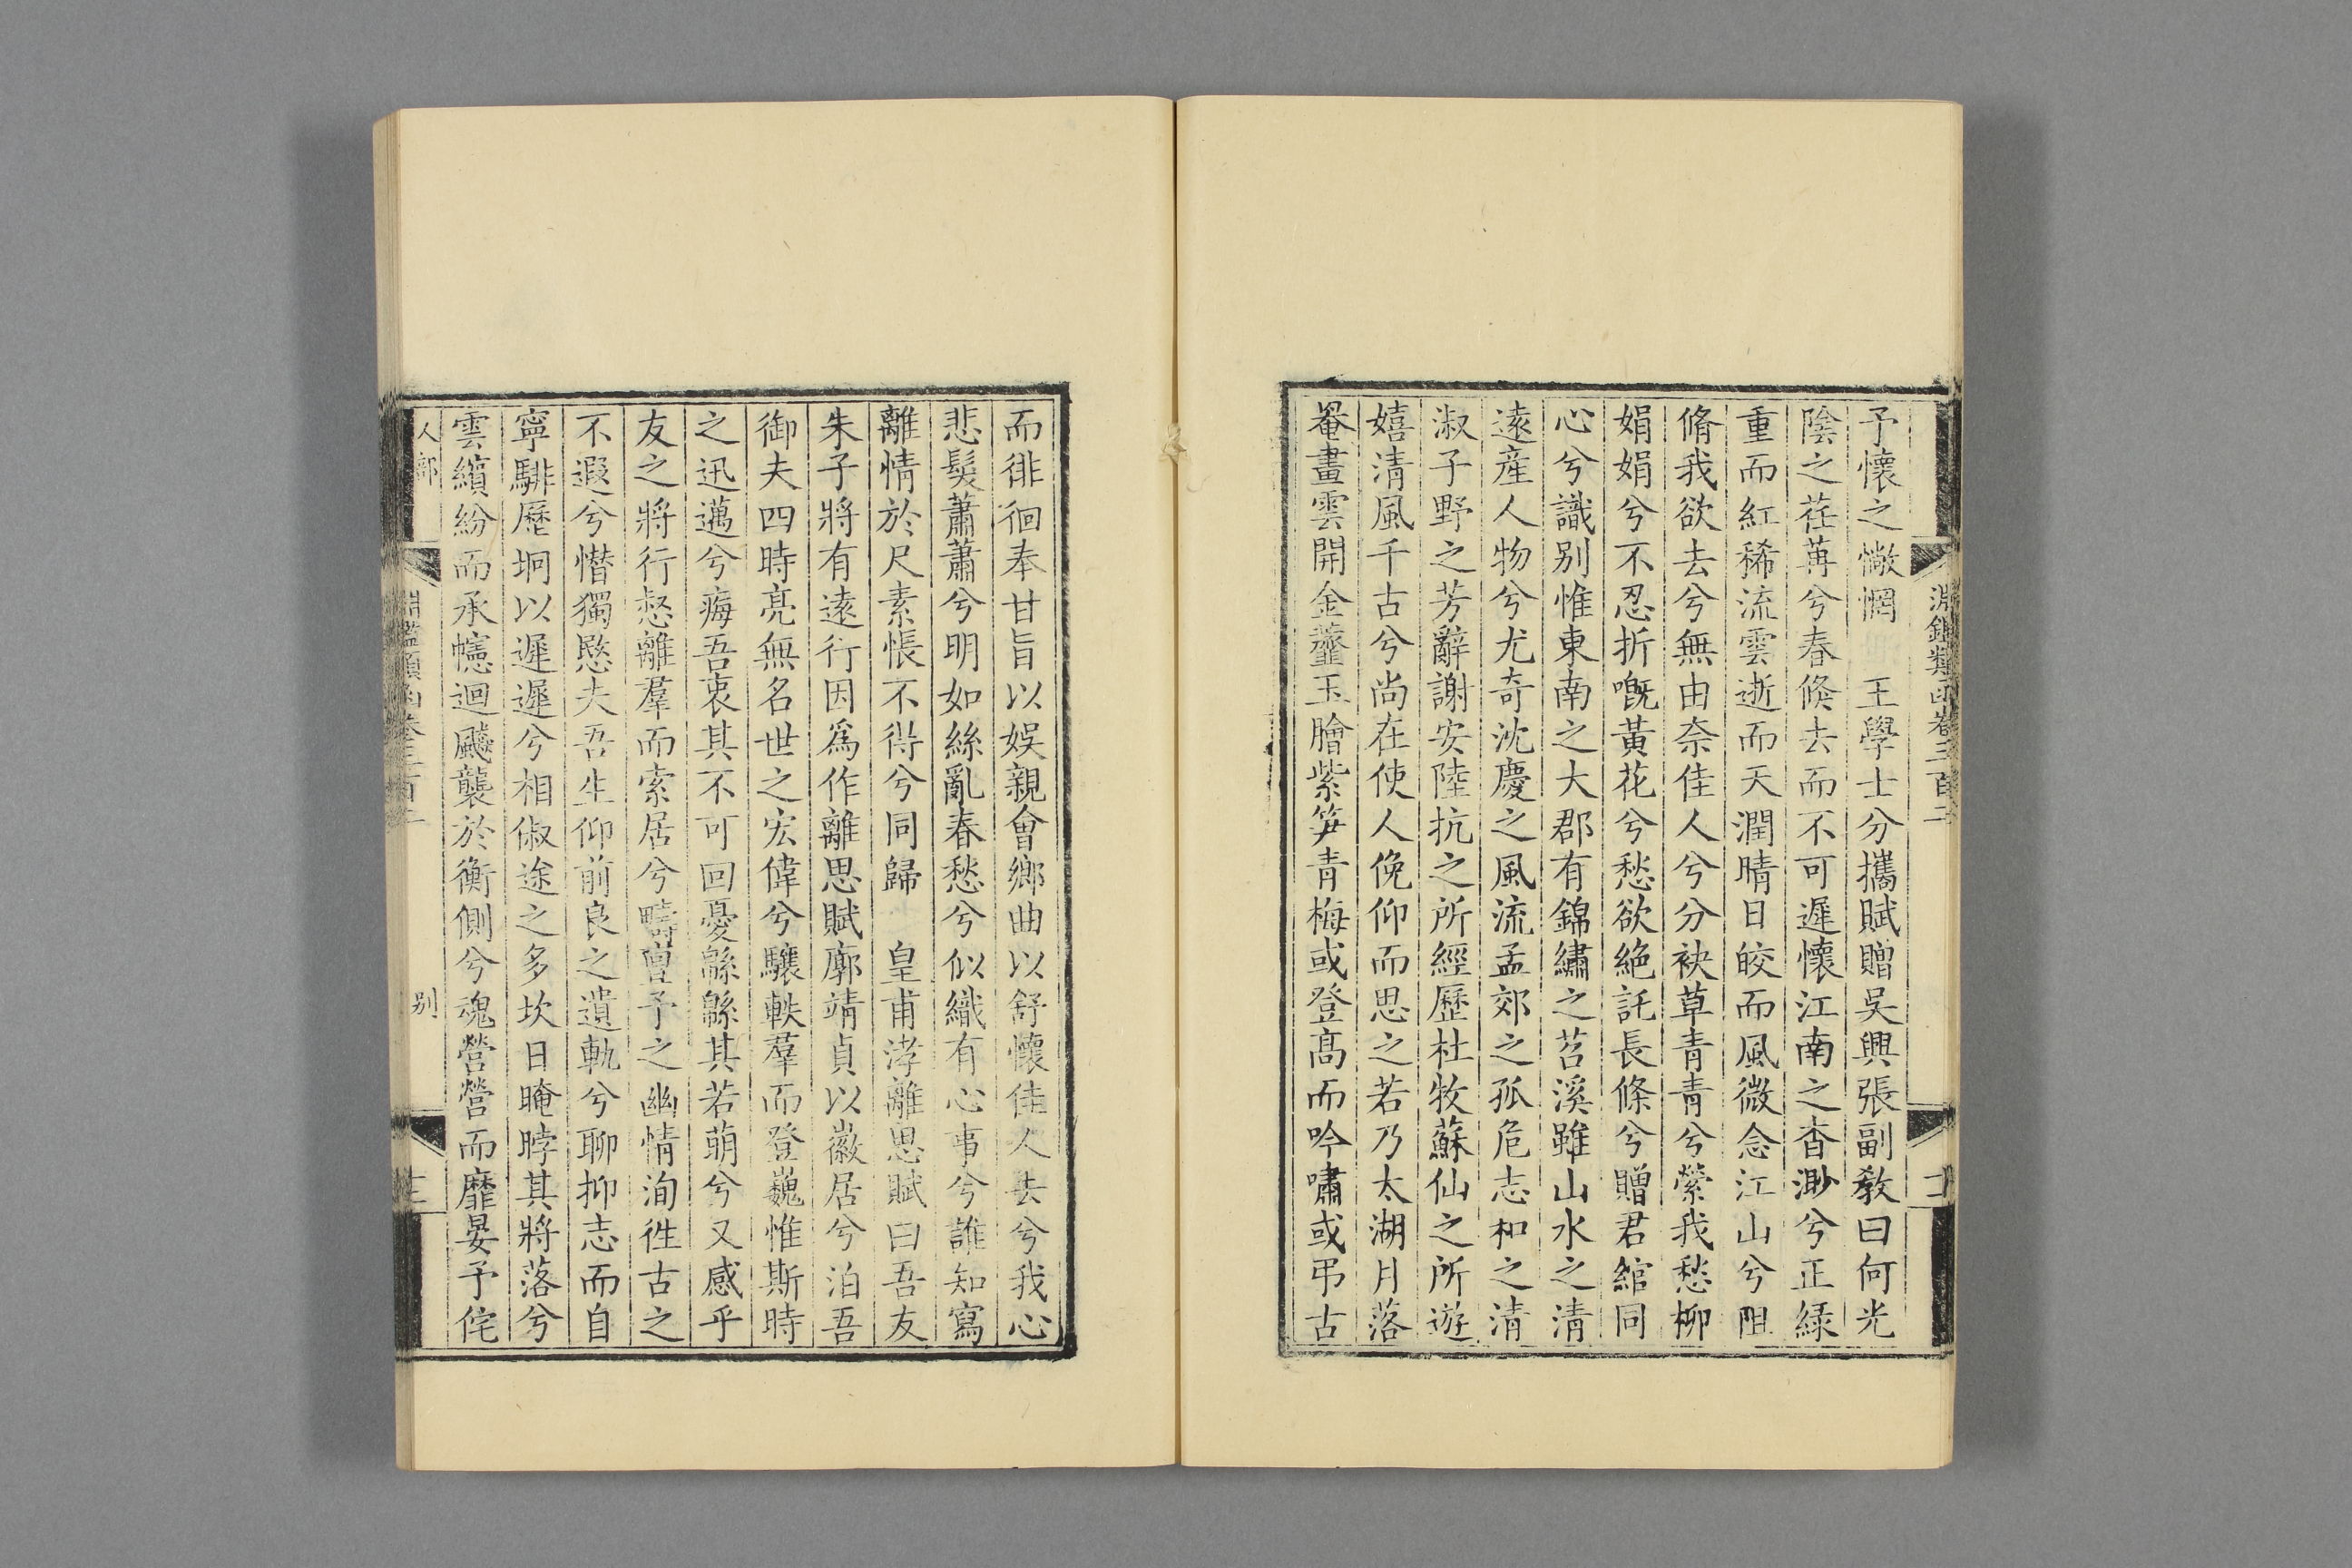 淵鑑類函卷三百二
予懷之懒惘　王學士分攜賦贈吳興張副教曰何光
陰之荏苒兮春倏去而不可遲懷江南之杳渺兮正緑
重而紅稀流雲逝而天濶晴日皎而風微念江山兮阻
脩我欲去兮無由奈佳人兮分袂草青青兮縈我愁柳
娟娟兮不忍折嘅黃花兮愁欲絶託長條兮贈君綰同
心兮識别惟東南之大郡有錦繡之苕溪雖山水之清
遠産人物兮尤奇沈慶之風流孟郊之孤危志和之清
淑子野之芳辭謝安陸抗之所經歷杜牧蘇仙之所遊
嬉清風千古兮尚在使人俛仰而思之若乃太湖月落
罨畫雲開金虀玉膾紫笋青梅或登髙而吟嘯或弔古
而徘徊奉甘旨以娱親會鄉曲以舒懷佳人去兮我心
悲髮蕭蕭兮明如絲亂春愁兮似織有心事兮誰知寫
離情於尺素悵不得兮同歸　皇甫涍離思賦曰吾友
朱子將有遠行因爲作離思賦廓靖貞以徽居兮泊吾
御夫四時亮無名世之宏偉兮驤軼羣而登巍惟斯時
之迅邁兮痗吾衷其不可回憂緜緜其若萌兮又感乎
友之將行惄離羣而索居兮疇亶予之幽情洵徃古之
不遐兮憯獨愍夫吾生仰前良之遺軌兮聊抑志而自
寧騑歷坰以遲遲兮相俶途之多坎日晻晻其將落兮
雲繽紛而承幰迴飈襲於衡側兮魂營營而靡晏予侘
人部
淵鑑類函卷三百二
别